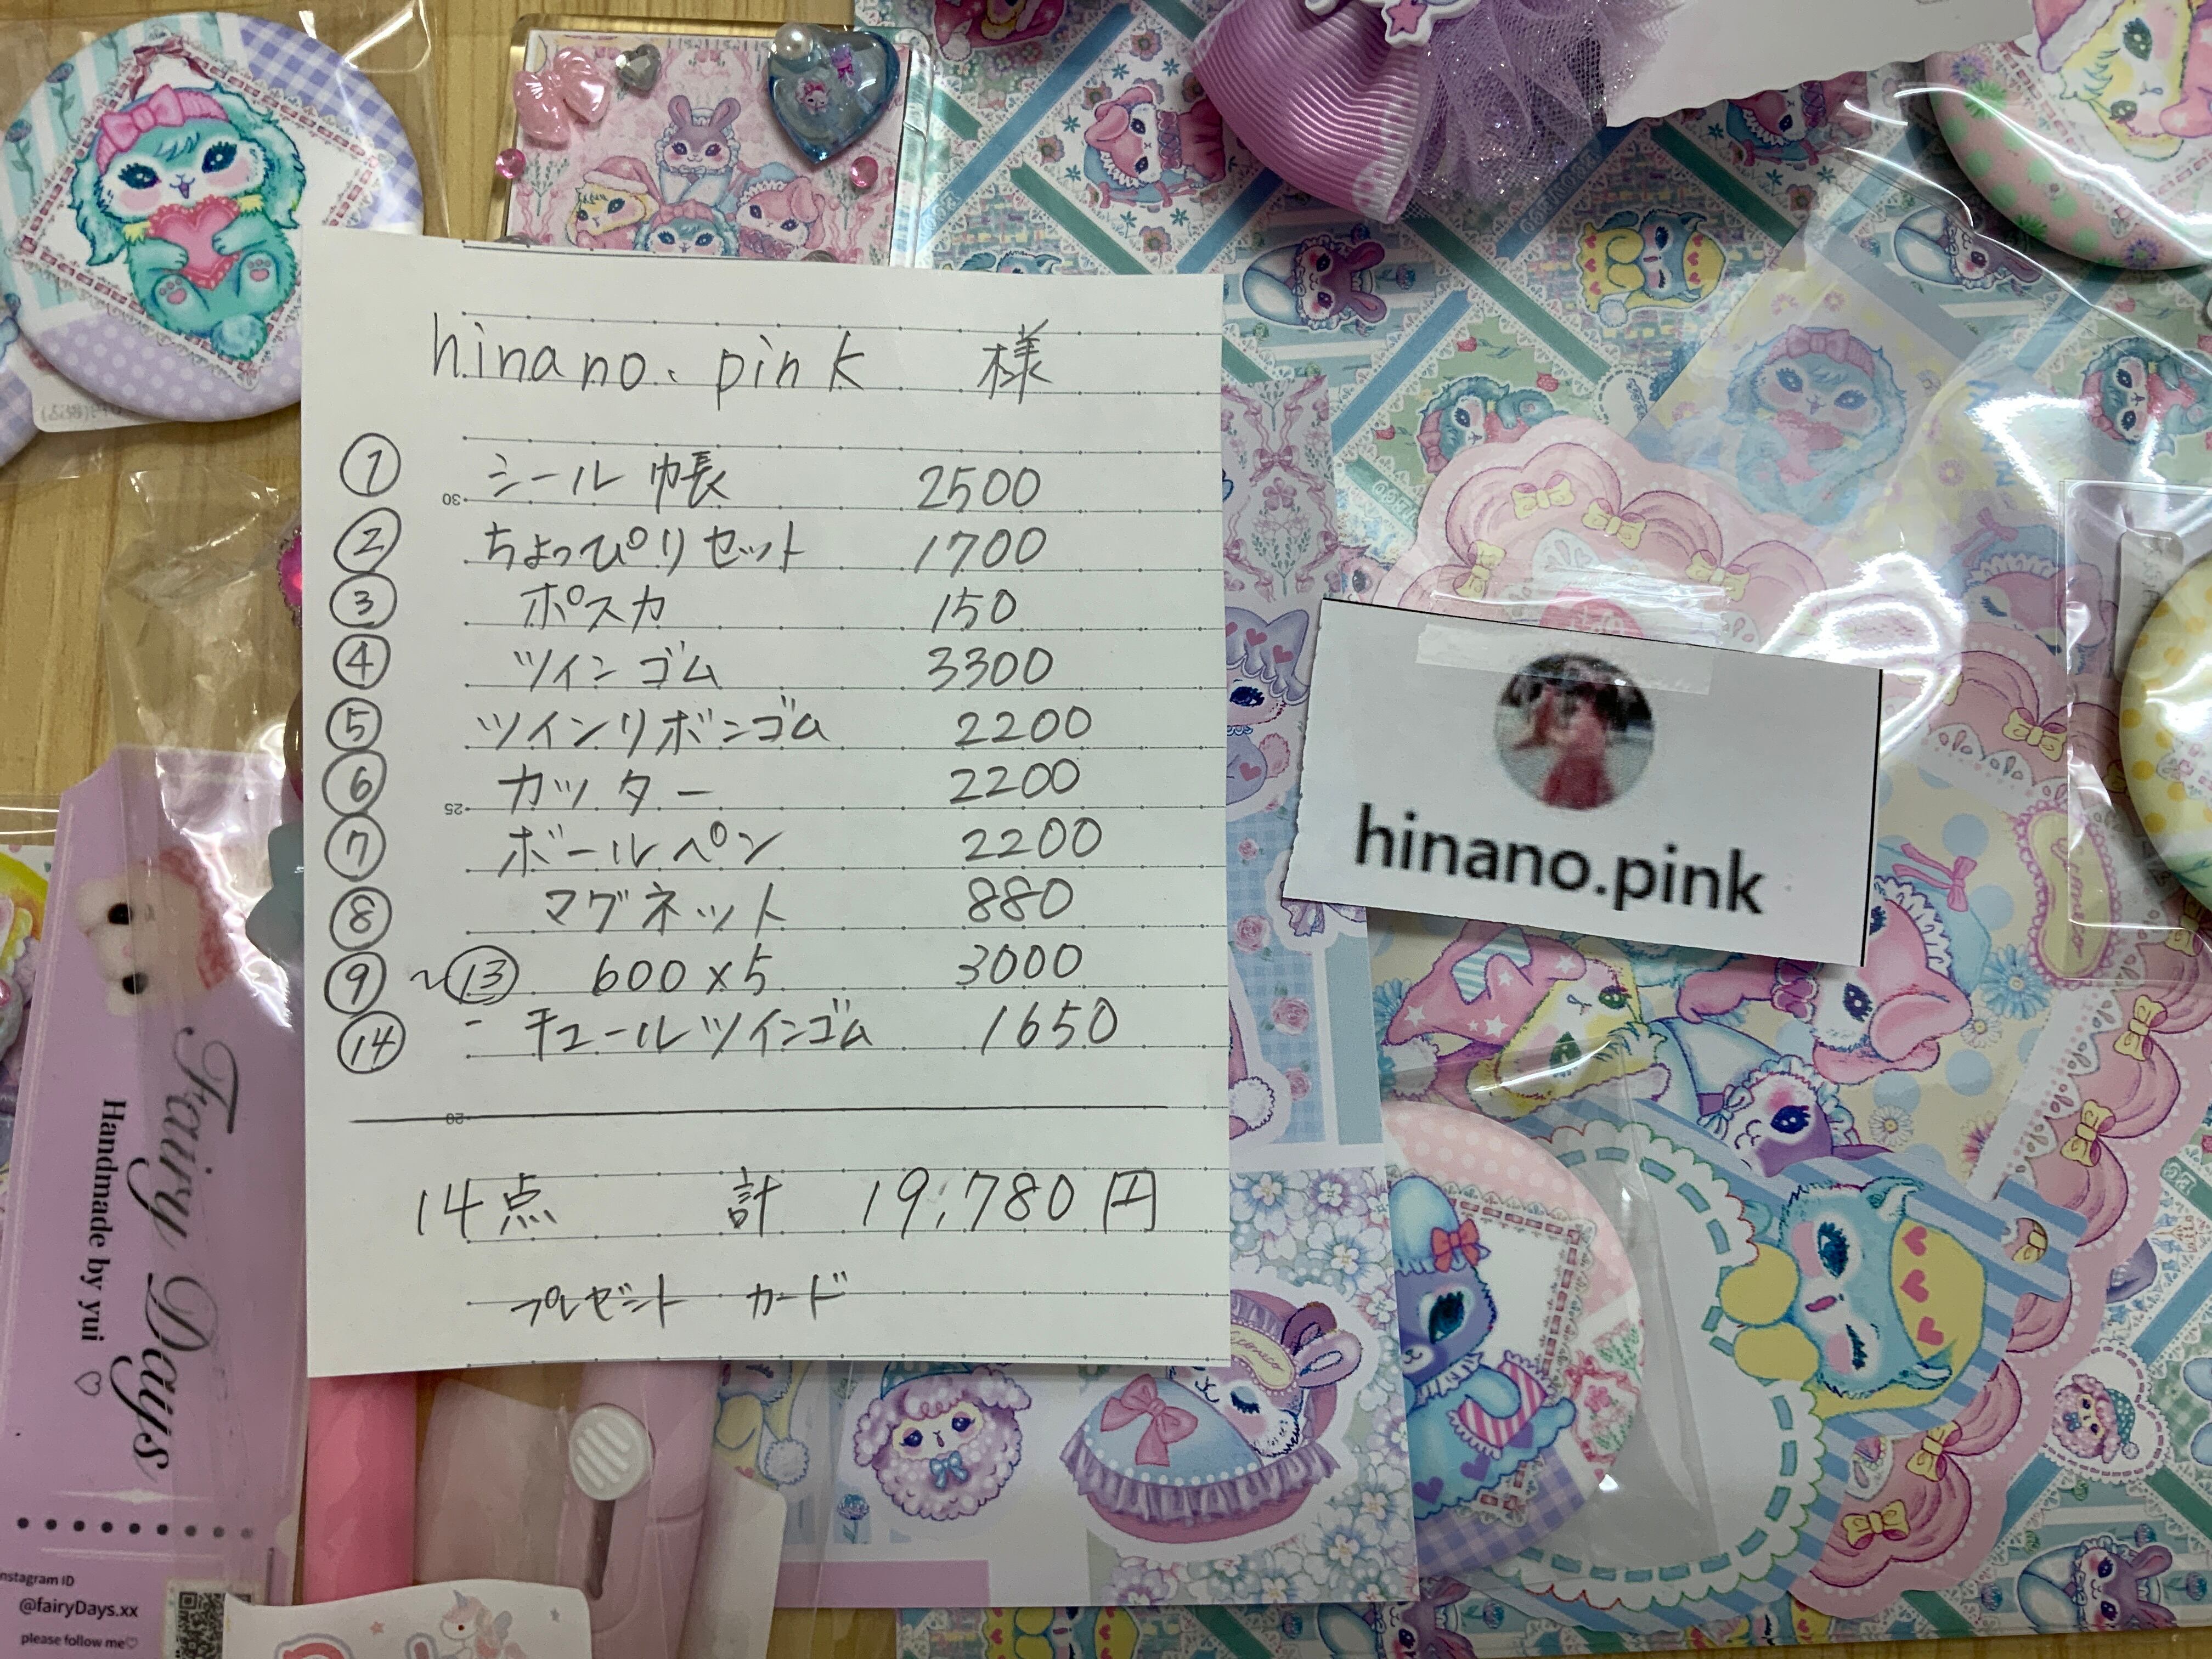 hinano.pink 様
① シール帳 2500
② ちょっぴりセット 1700
③ ポスカ 150
④ ツインゴム 3300
⑤ ツインリボンゴム 2200
⑥ カッター 2200
⑦ ボールペン 2200
⑧ マグネット 880
⑨~⑬ 600×5 3000
⑭ - チュールツインゴム 1650
14点 計 19,780円
プレゼント カード
30
25
20
hinano.pink
Fairy Days
Handmade by yui ♡
nstagram ID
@fairyDays.xx
please follow me♡